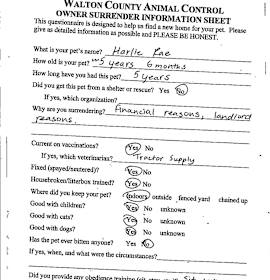 WALTON COUNTY ANIMAL CONTROL
OWNER SURRENDER INFORMATION SHEET
This questionnaire is designed to help us find a new home for your pet. Please
give as detailed information as possible and PLEASE BE HONEST.
What is your pet's name? Harlie Rae
How old is your pet? ~5 years 6 months
How long have you had this pet? 5 years
Did you get this pet from a shelter or rescue? Yes No
If yes, which organization?
Why are you surrendering? Financial reasons, landlord
reasons.
Current on vaccinations? Yes No
If yes, which veterinarian? Tractor Supply
Fixed (spayed/neutered)? Yes No
Housebroken/litterbox trained? Yes No
Where did you keep your pet? Indoors outside fenced yard chained up
Good with children? Yes No unknown
Good with cats? Yes No unknown
Good with dogs? Yes No unknown
Has the pet ever bitten anyone? Yes No
If yes, when, and what were the circumstances?
Did you provide any obedience training